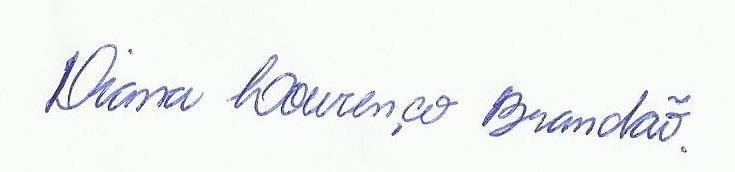 Diana Lourenço Brandão.